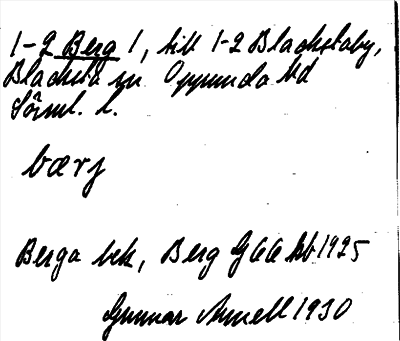 1-2 Berg 1, till 1-2 Blackstaby,
Blacksta sn Oppunda hd
Sörml. l.
bærj
Berga bek, Berg GEA kb 1925
Gunnar Arnell 1930